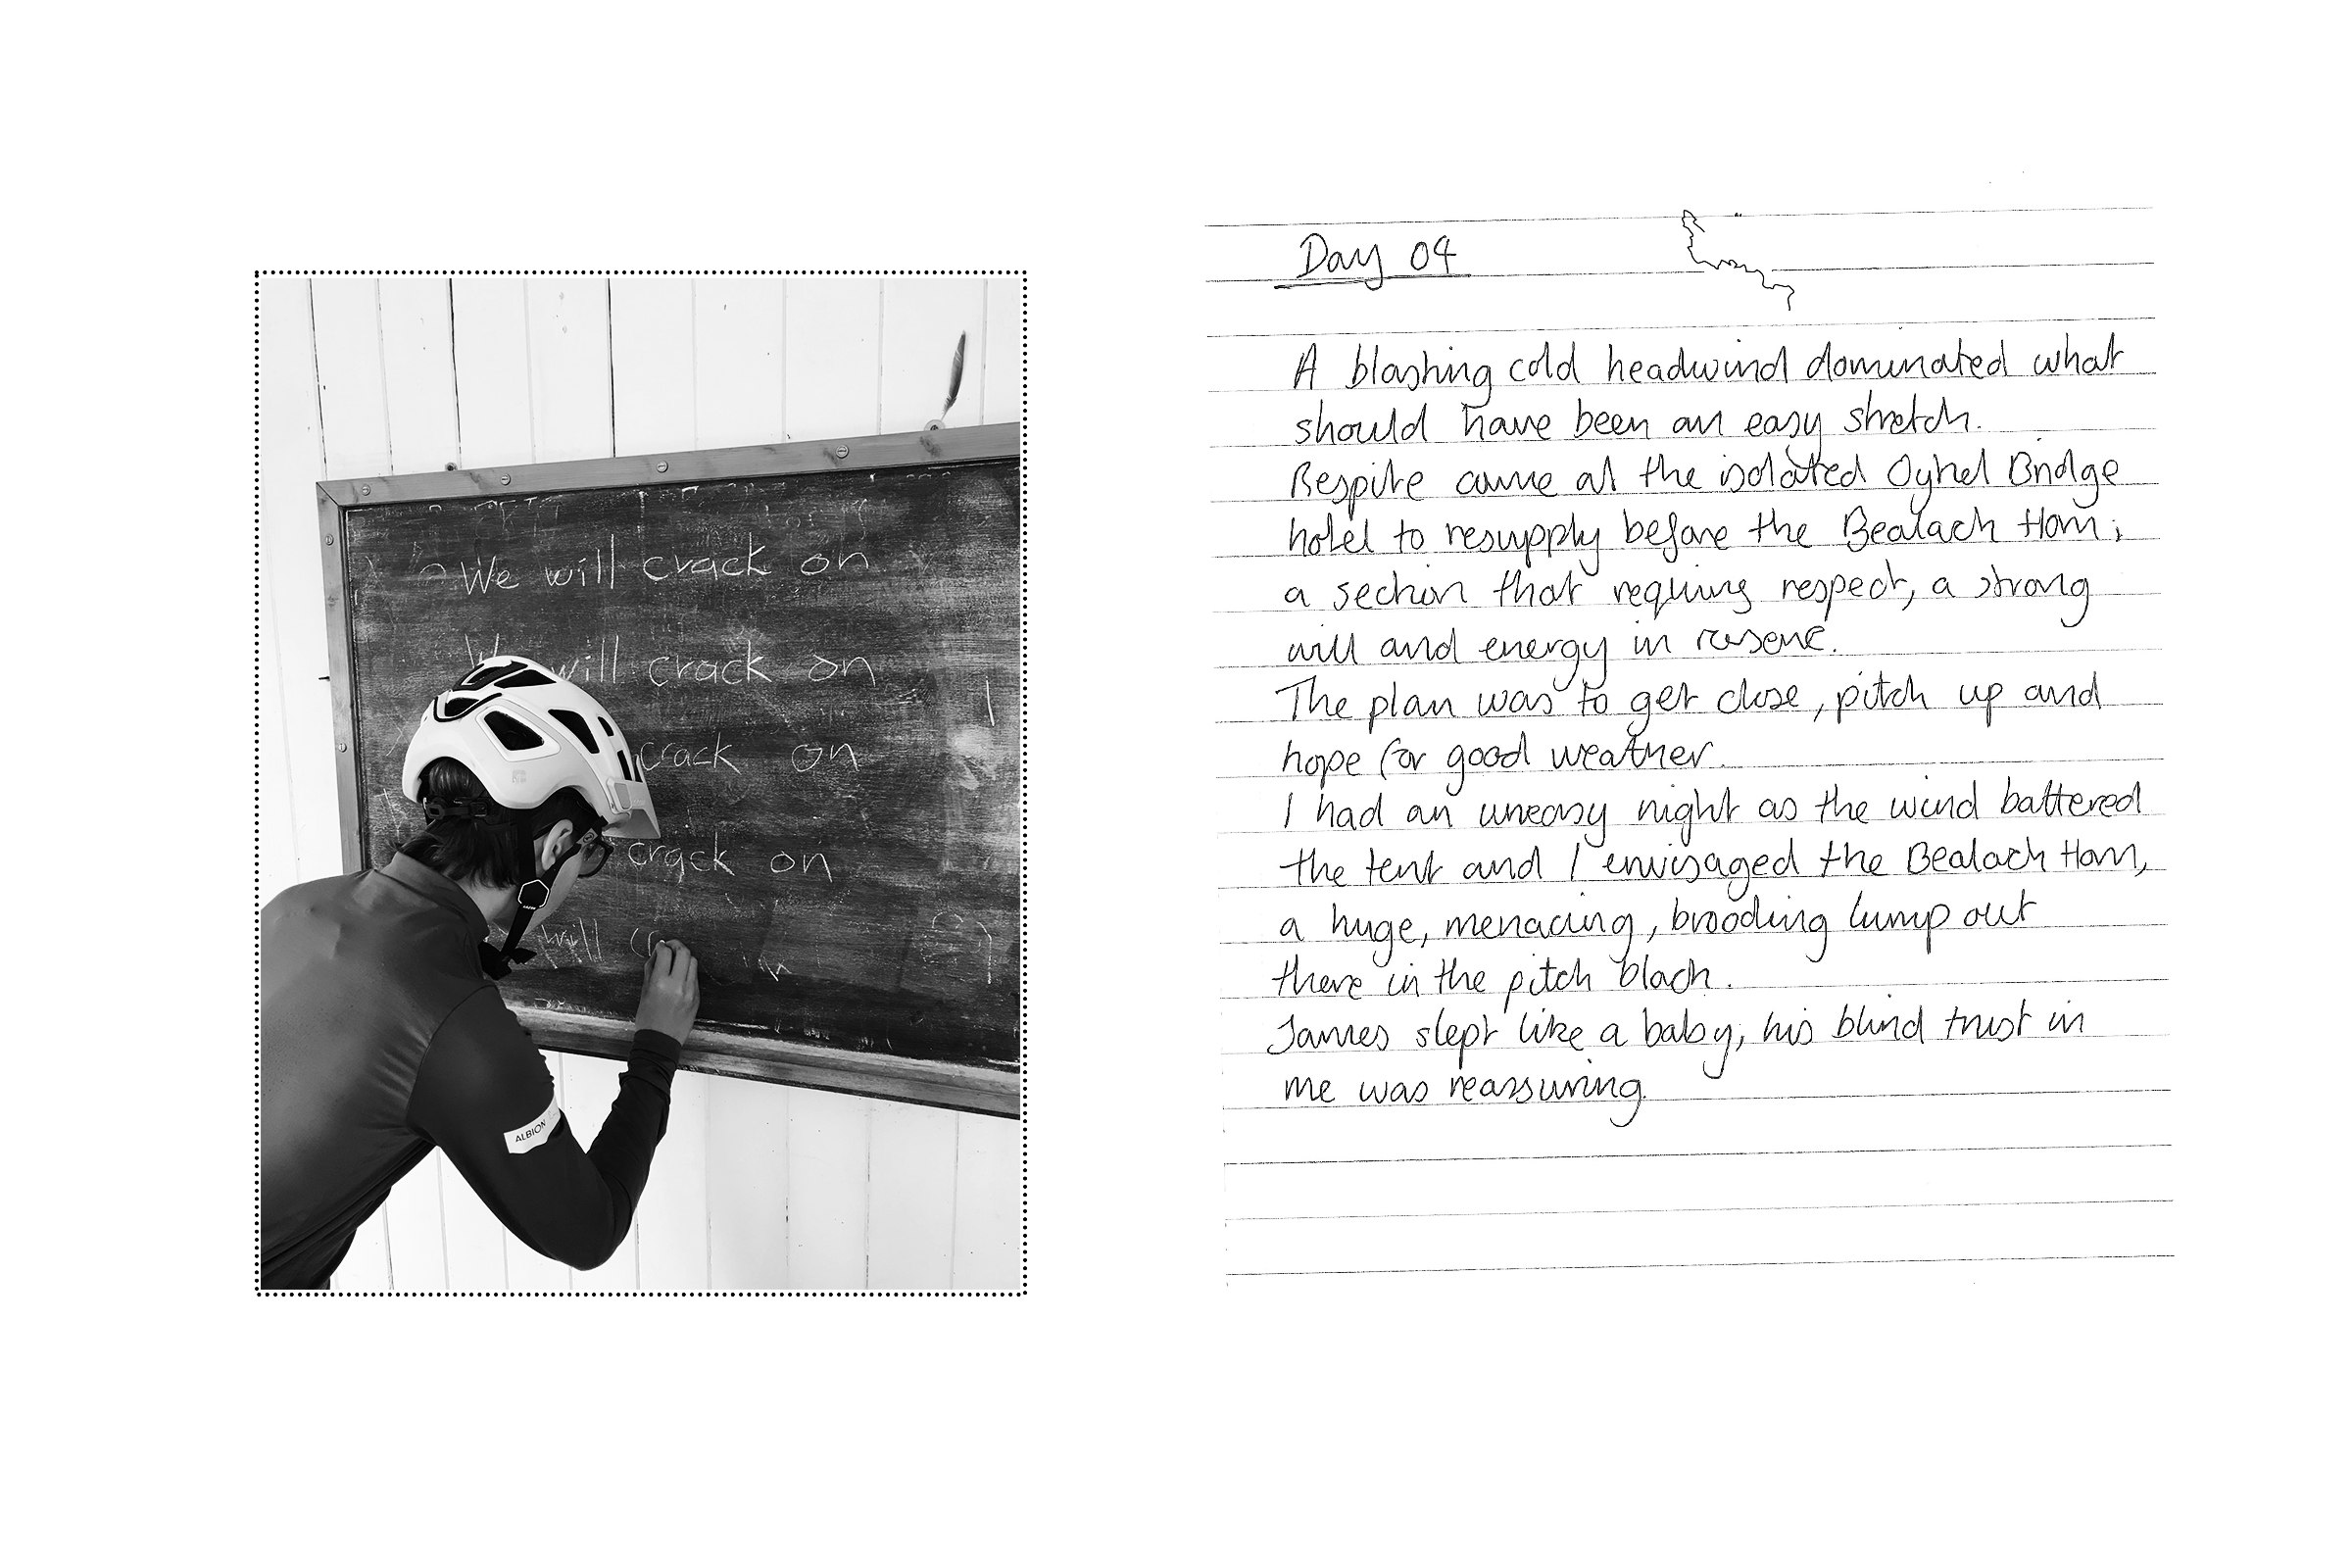 We will crack on
We will crack on
crack on
crack on
will
ALBION
Day 04
A blashing cold headwind dominated what
should have been an easy stretch.
Respite came at the isolated Oykel Bridge
hotel to resupply before the Bealach Horn;
a section that requires respect, a strong
will and energy in reserve.
The plan was to get close, pitch up and
hope for good weather.
I had an uneasy night as the wind battered
the tent and I envisaged the Bealach Horn,
a huge, menacing, brooding lump out
there in the pitch black.
James slept like a baby, his blind trust in
me was reassuring.